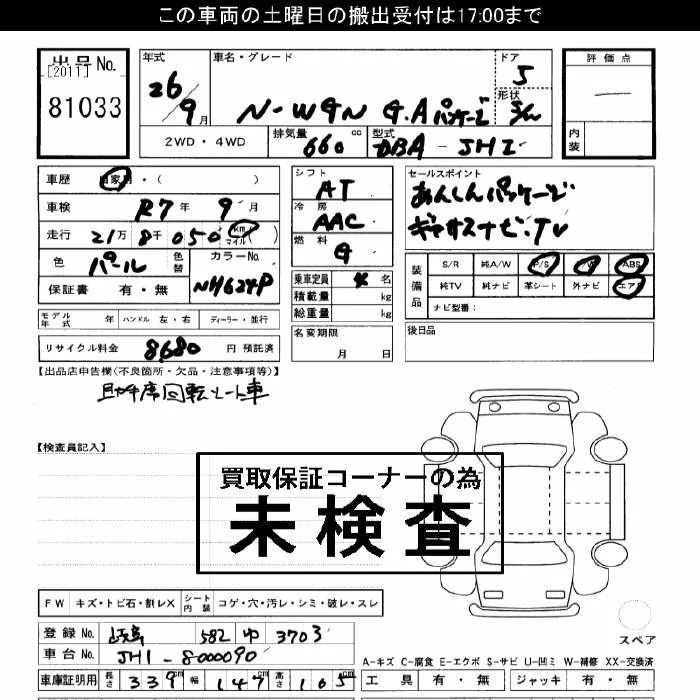 この車両の土曜日の搬出受付は17:00まで
出品No.
[2011]
81033
年式
26年
9月
車名・グレード
N-WGN G.Aパッケージ
ドア
5
形状
評価点
―
内装
2WD・4WD
排気量 660 cc
型式 DBA-JH1
車歴 自家用・( )
車検 R7年 9月
走行 21万 8千 050 km マイル ( )
色 パール 色替
カラーNo. NH624P
保証書 有・無
シフト
AT
冷房
AAC
燃料
G
乗車定員 4 名
積載量 kg
総重量 kg
セールスポイント
あんしんパッケージ
ギャザズナビ・TV
装備品
S/R 純A/W P/S P/W ABS
純TV 純ナビ 革シート 外ナビ エアB
ナビ型番:
モデル年式 年 ハンドル 左・右 ディーラー・並行
名変期限
月 日
後日品
リサイクル料金 8680 円 預託済
【出品店申告欄(不良箇所・欠品・注意事項等)】
助手席回転シート車
【検査員記入】
買取保証コーナーの為
未検査
FW キズ・トビ石・割レX シート内装 コゲ・穴・汚レ・シミ・破レ・スレ
登録No. 岐阜 582 ゆ 3703
車台No. JH1-8000090
車庫証明用 長さ 339 cm 幅 147 cm 高さ 165 cm
スペア
A-キズ C-腐食 E-エクボ S-サビ U-凹ミ W-補修 XX-交換済
工具 有・無 ジャッキ 有・無